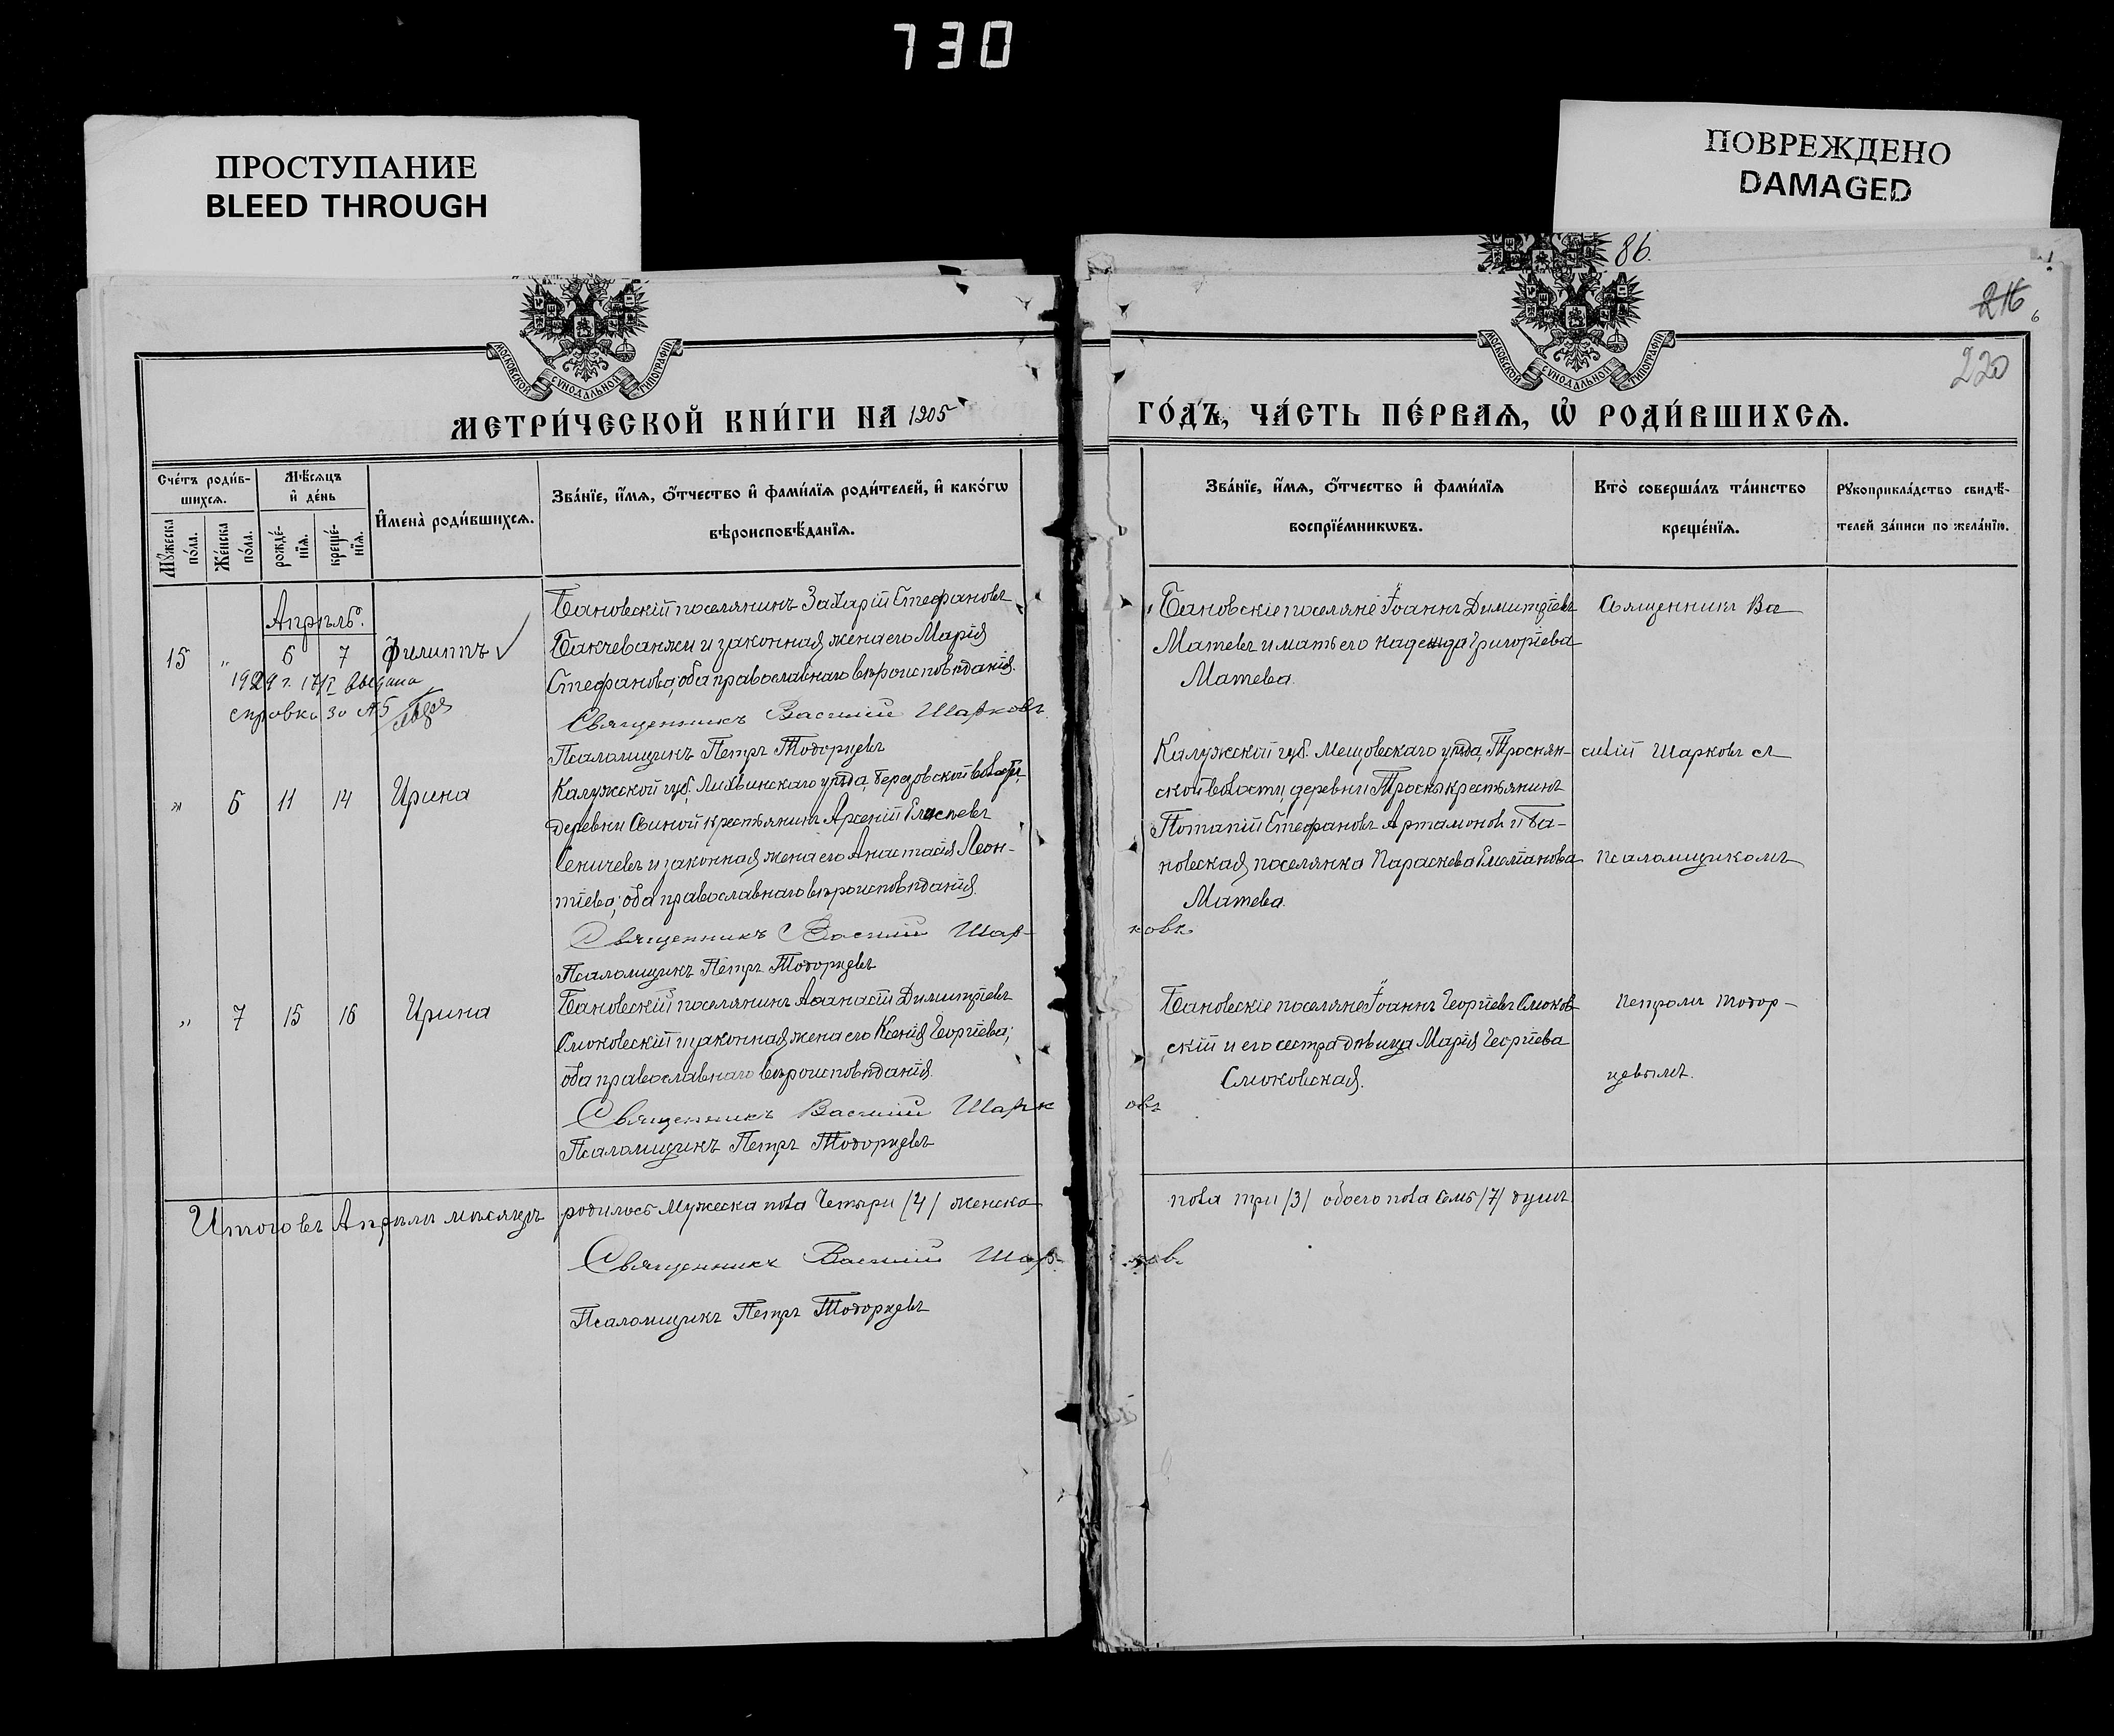 730
ПРОСТУПАНИЕ
BLEED THROUGH
ПОВРЕЖДЕНО
DAMAGED
86.
216
220
МОСКОВСКОЙ СѴНОДАЛЬНОЙ ТИПОГРАФІИ
МОСКОВСКОЙ СѴНОДАЛЬНОЙ ТИПОГРАФІИ
МЕТРИ́ЧЕСКОЙ КНИ́ГИ НА 1905
ГО́ДЪ, ЧА́СТЬ ПЕ́РВАѦ, Ѡ҆ РОДИ́ВШИХСѦ.
Сче́тъ роди́в-
шихсѧ.
Мѣ́сѧцъ
и҆ де́нь
Мꙋ́жеска по́ла.
Же́нска по́ла.
рожде́-
нїѧ.
креще́-
нїѧ.
И҆мена̀ роди́вшихсѧ.
Зва́нїе, и҆́мѧ, ѻ҆́тчество и҆ фами́лїѧ роди́телей, и҆ како́гѡ
вѣроисповѣ́данїѧ.
Зва́нїе, и҆́мѧ, ѻ҆́тчество и҆ фами́лїѧ
воспрїе́мникѡвъ.
Кто̀ соверша́лъ та́инство
креще́нїѧ.
Рꙋкоприкла́дство свидѣ́-
телей за́писи по жела́нїю.
Апрѣль.
15 " 6 7 Филиппъ
1929 г. 17/I выдана
справка за № 5
Бановскій поселянинъ Захарій Стефановъ
Бакчеванжи и законная жена его Марія
Стефанова, оба православнаго вѣроисповѣданія.
Священникъ Василій Шарковъ.
Псаломщикъ Петръ Тодорцевъ
Бановскіе поселяне Іоаннъ Димитріевъ
Матевъ и мать его Надежда Григоріева
Матева.
Священникъ Ва-
" 6 11 14 Ирина
Калужской губ. Лихвинскаго уѣзда, Бередовской волости,
деревни Свиной крестьянинъ Арсеній Елисѣевъ
Сеничевъ и законная жена его Анастасія Леон-
тіева; оба православнаго вѣроисповѣданія.
Священникъ Василій Шар-
ковъ
Псаломщикъ Петръ Тодорцевъ
Калужской губ. Мещовскаго уѣзда, Троснян-
ской волости, деревни Тросны крестьянинъ
Потапій Стефановъ Артамоновъ и Ба-
новская поселянка Параскева Емеліанова
Матева.
силій Шарковъ съ
псаломщикомъ
" 7 15 16 Ирина
Бановскій поселянинъ Аѳанасій Димитріевъ
Смоковскій и законная жена его Ксенія Георгіева;
оба православнаго вѣроисповѣданія.
Священникъ Василій Шарк
овъ
Псаломщикъ Петръ Тодорцевъ
Бановскіе поселяне Іоаннъ Георгіевъ Смоков-
скій и его сестра дѣвица Марія Георгіева
Смоковская.
Петромъ Тодор-
цевымъ.
Итого въ Апрѣлѣ мѣсяцѣ родилось Мужеска пола Четыри /4/ женска
пола три /3/ обоего пола Семь /7/ душъ
Священникъ Василій Шар-
ковъ
Псаломщикъ Петръ Тодорцевъ